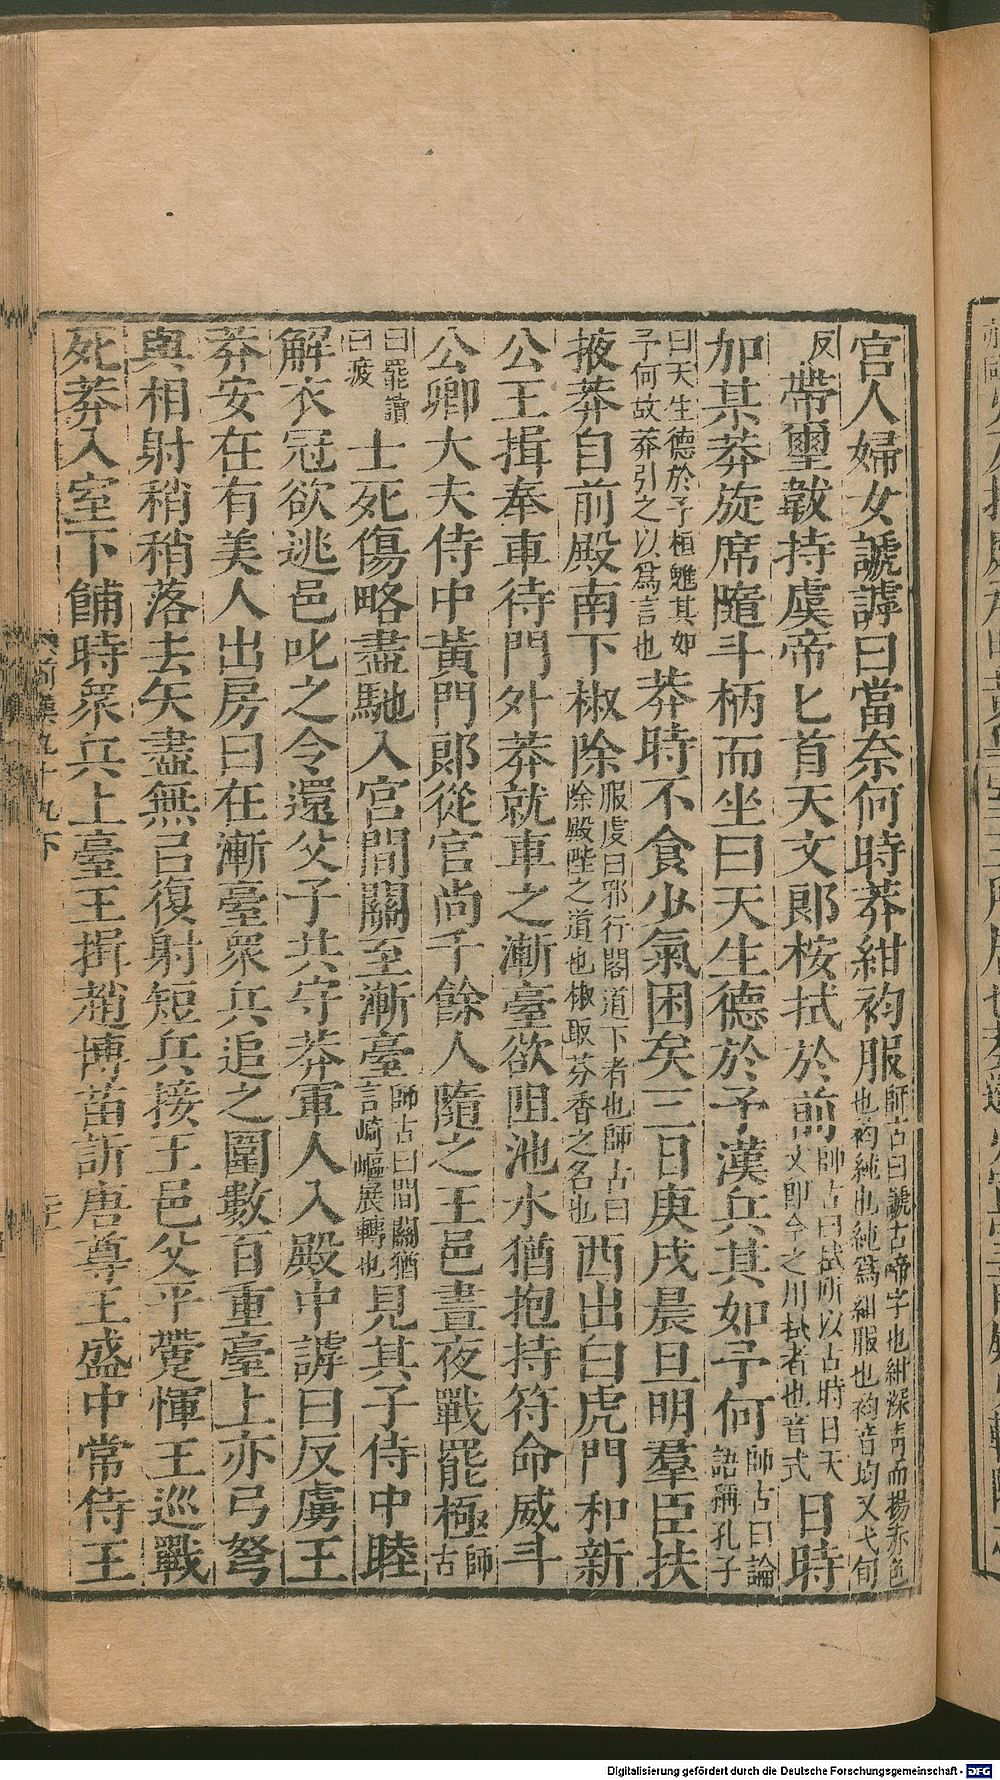 宮人婦女謕謼曰當奈何時莽紺袀服師古曰謕古啼字也紺深青而揚赤色也袀純也純爲紺服也袀音均又弋旬
反帶璽韍持虞帝匕首天文郎桉拭於前師古曰拭所以占時日天文郎今之用栻者也音式日時
加某莽旋席隨斗柄而坐曰天生德於予漢兵其如予何師古曰論語稱孔子
曰天生德於予桓魋其如予何故莽引之以爲言也莽時不食少氣困矣三日庚戌晨旦明羣臣扶
掖莽自前殿南下椒除服虔曰邪行閣道下者也師古曰除殿陛之道也椒取芬香之名也西出白虎門和新
公王揖奉車待門外莽就車之漸臺欲阻池水猶抱持符命威斗
公卿大夫侍中黃門郎從官尚千餘人隨之王邑晝夜戰罷極師古
曰罷讀曰疲士死傷略盡馳入宮間關至漸臺師古曰間關猶言崎嶇展轉也見其子侍中睦
解衣冠欲逃邑叱之令還父子共守莽軍人入殿中謼曰反虜王
莽安在有美人出房曰在漸臺衆兵追之圍數百重臺上亦弓弩
與相射稍稍落去矢盡無㠯復射短兵接王邑父平䠠惲王巡戰
死莽入室下餔時衆兵上臺王揖趙博苗訢唐尊王盛中常侍王
前漢九十九下
Digitalisierung gefördert durch die Deutsche Forschungsgemeinschaft - DFG